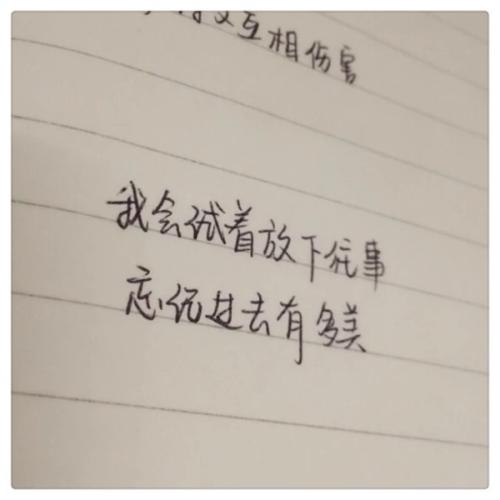 又互相伤害
我会试着放下往事
忘记过去有多美